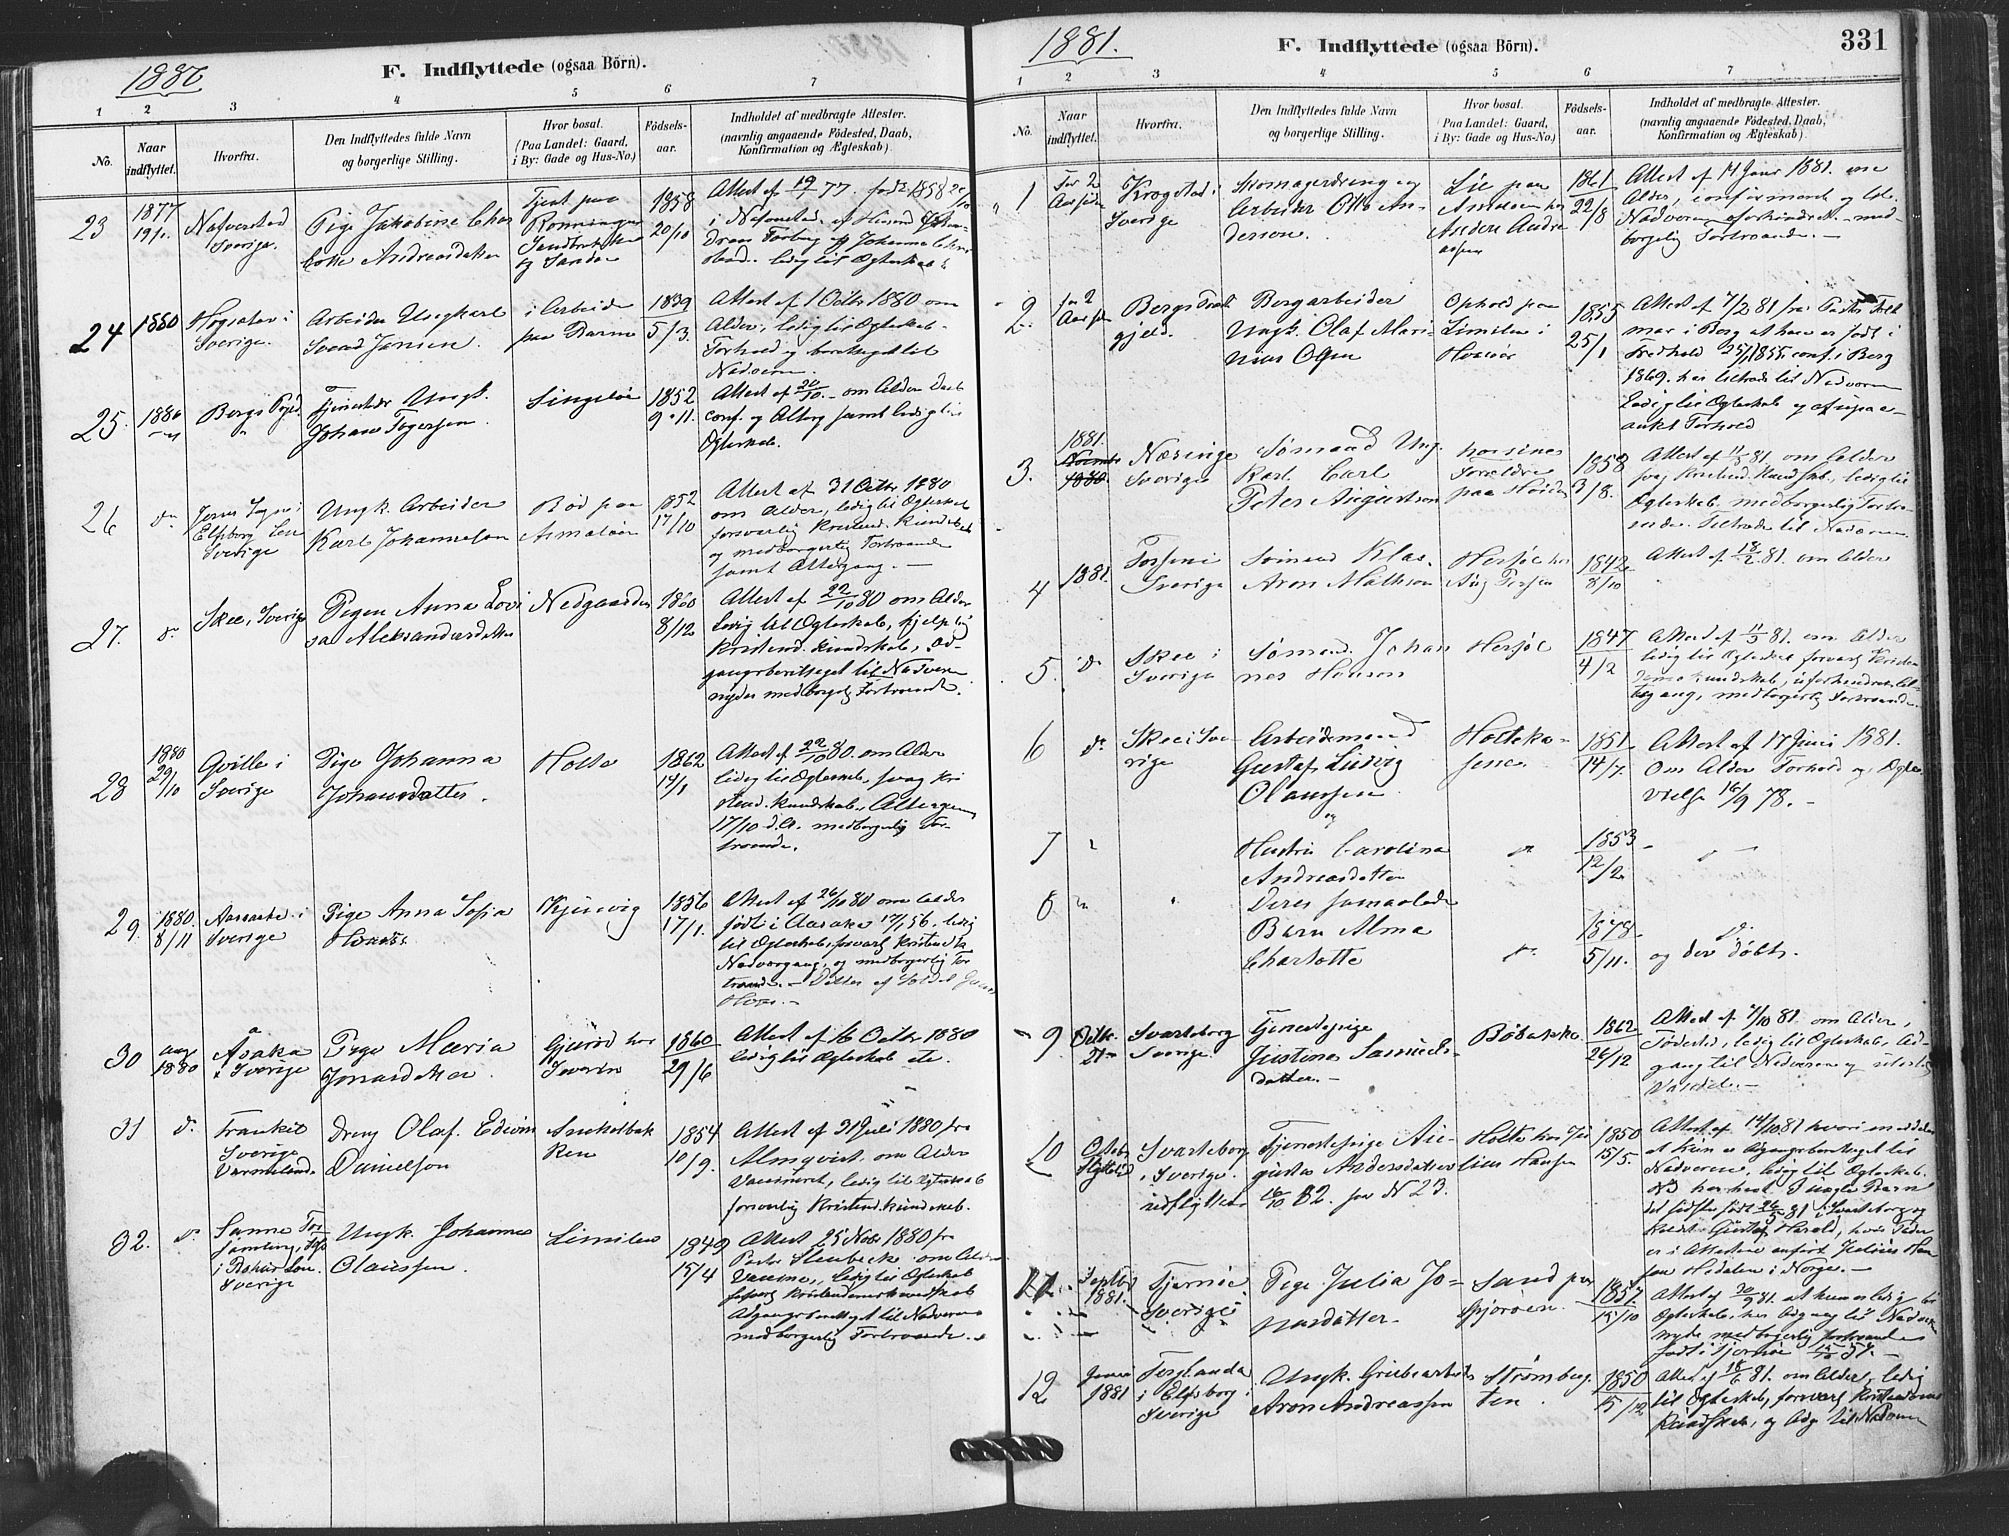 1880
F. Indflyttede (ogsaa Börn).
1 2 3 4 5 6 7
No.
Naar indflyttet.
Hvorfra.
Den Indflyttedes fulde Navn
og borgerlige Stilling.
Hvor bosat.
(Paa Landet: Gaard,
i By: Gade og Hus-No.)
Födsels-
aar.
Indholdet af medbragte Attester.
(navnlig angaaende Födested, Daab,
Konfirmation og Ægteskab)
23
1877
19/1
Nafverstad
Sverige
Pige Jakobine Char
lotte Andreasdatter
Tjent paa
1858
20/10
Attest af 77. född 1858
ledig til Ægteskab
24
1880
Hogsater i
Sverige
Arbeider Ungkarl
Svend Jansen.
i Arbeide
paa
1839
5/3.
Attest af 1 Octbr 1880 om
Alder, ledig til Ægteskab-
Forhold og berettiget til
Nadveren.
25.
1880
Bergs Pgjd.
Tjenestekar Ungk.
Johans Togersen
Singeløe
1852
9-11.
Attest af 20/10 - om Alder Daab
conf. og Alterg samt ledig til
Ægteskab.
26
do
Elfsborg Len
Sverige
Ungk. Arbeider
Karl Johanneson
Rød paa
Asmaløen
1852
17/10
Attest af 31 Octbr 1880
om Alder, ledig til Ægteskab
forsvarlig Kristend. Kundskab
og medborgerlig Fortroende
samt Altergang. -
27.
do
Skee, Sverige
Pigen Anna Lovi
sa Aleksandersdatter
Nedgaarden
1860
8/12
Attest af 22/10 80 om Alder
ledig til Ægteskab, hjelplig
Kristend. Kundskab, Ad-
gangsberettiget til Nadveren
nyder medborgelig Fortroende.
28
1880
29/10
Qville i
Sverige
Pige Johanna
Johansdatter.
Holte
1862
14/1
Attest af 22/10 80. om Alder
ledig til Ægteskab, svag Kri
stend. Kundskab, Altergang
17/10 d.A. medborgerlig For-
troende.
29.
1880.
8/11
Aasarke i
Sverige
Pige Anna Sofia
Kjursvig
1856
17/1.
Attest af 26/10 80 om Alder
født i Aasaka 17/1 56, ledig
til Ægteskab, forsvarl Kristend. K
Nadvergang, og medborgerlig For
troende. - Datter af Soldat
30
aug
1880
Åsaka
Sverige
Pige Maria
Jonasdatter
Gjurød hos
Severin
1860
29/6
Attest af 16 Octbr 1880
ledig til Ægteskab etc.
31
do.
Sverige
Varmeland.
Dreng Olaf Edvin
Danielson
1854
10/9.
Attest af 21 Juli 1880 fra
Almqvist. om Alder
Vaccineret, ledig til Ægteskab
forsvarlig Kristend. kundskab.
32.
do
Sanne For
samling,
i Bohus Len
Sverige
Ungk. Johannes
Olaussen
Limilen
1849
15/4
Attest 25 Novbr 1880 fra
Pastor Stenbeck om Alder
Vaccine, ledig til Ægteskab
forsvarl Kristendomskundskab
Adgangsberettiget til Nadveren
medborgerlig Fortroende.
1881.
F. Indflyttede (ogsaa Börn).
331
1 2 3 4 5 6 7
No.
Naar
indflyttet.
Hvorfra.
Den Indflyttedes fulde Navn
og borgerlige Stilling.
Hvor bosat.
(Paa Landet: Gaard,
i By: Gade og Hus-No.)
Födsels-
aar.
Indholdet af medbragte Attester.
(navnlig angaaende Födested, Daab,
Konfirmation og Ægteskab)
1
For 2
Aar siden
Krogstad i
Sverige
Skomagerdreng og
Arbeider Otto An-
derson.
Lie paa
Anders Andre
assen
1861
22/8
Attest af 14 Januar 1881. om
Alder, confirmeret og til
Nadveren uforhindret. - med
borgelig Fortroende. -
2.
for 2
Aar siden
Bergs Præste
gjeld.
Bergarbeider
Ungk. Olaf Mari-
nius Olsen
Ophold paa
Limilen i
1855
25/1
Attest af 7/2 81 fra Pastor
i Berg at han er født i
Fredhald 25/1 1855. conf. i Berg
1869. har tiltræde til Nadveren
ledig til Ægteskab og
Forhold
3.
1881.
1880.
Næsinge
Sverige
Sømand Ung
karl Carl
Peter Augustson
hos sine
Forældre
paa
1858
3/8.
Attest af 81 om Alder
svag Kristend. Kundskab, ledig til
Ægteskab, medborgerlig Fortro-
ende. Tiltræde til Nadveren
4
1881.
Sverige
Sømand Klas
Aron Mathson
Herføl hos
1842
8/10
Attest af 18/2 81. om Alder
5.
do
Skee i
Sverige
Sømand. Johan
nes Hanson
Herføl
1847
4/2
Attest af 11/5 81. om Alder
ledig til Ægteskab forsvarl Kristen
doms kundskab, uforhindret Al-
tergang, medborgerlig Fortroende.
6
do
Skee i Sve-
rige
Arbeidsmand
Gustaf Ludvig
Olaussen
og
Holteka-
sene.
1851.
14/7.
Attest af 17 Juni 1881.
Om Alder Forhold og Ægte-
vielse 16/9 78. -
7
Hustru Carolina
Andreasdatter
do
1853
12/2
do
8
Deres samaalede
Barn Alma
Charlotte
do.
1878.
5/11.
do.
og der døbt.
9
Octbr.
21
Svarteborg
Sverige.
Tjenestepige
Justine Samuels-
datter. -
Bøbakke
1862
26/12
Attest af 7/10 81. om Alder,
Fødested, ledig til Ægteskab, Ad-
gang til Nadveren og
Vandel. -
10
Svarteborg
i Sverige.
udflyttet
Tjenestepige Au-
gusta Andersdatter
16/10 82. for N 23.
Holte hos Ju
lius Hansen
1850
15/5.
Attest af 14/10 81 hvori meddeles
at hun er Adgangsberettiget til
Nadveren, ledig til Ægteskab.
NB har havt 2 uægte Børn
det sidste født 81 i Svarteborg og
kaldt Gustaf Harald, hvis Fader
er i Attesten anført Julius Han
sen Hvaler i Norge. -
11.
Septbr
1881.
Tjernøe
Sverige
Pige Julia Jo-
nasdatter -
Sand paa
Spjærøen.
1857
15/10
Attest af 20/9 81. at hun er ledig til
Ægteskab, har Adgang til Nadver
nyde medborgerlig fortroende
født i Tjernøe 15/10 57. -
12
1881
Torslanda
i Elfsborg
Sverige
Ungk. Grubearbeider
Aron Andreassen
Strømberg
ten.
1850
15/12
Attest af 18/6 81. om Alder, ledig
til Ægteskab, forsvarl Kristendoms
Kundskab, og Adg. til Nadveren